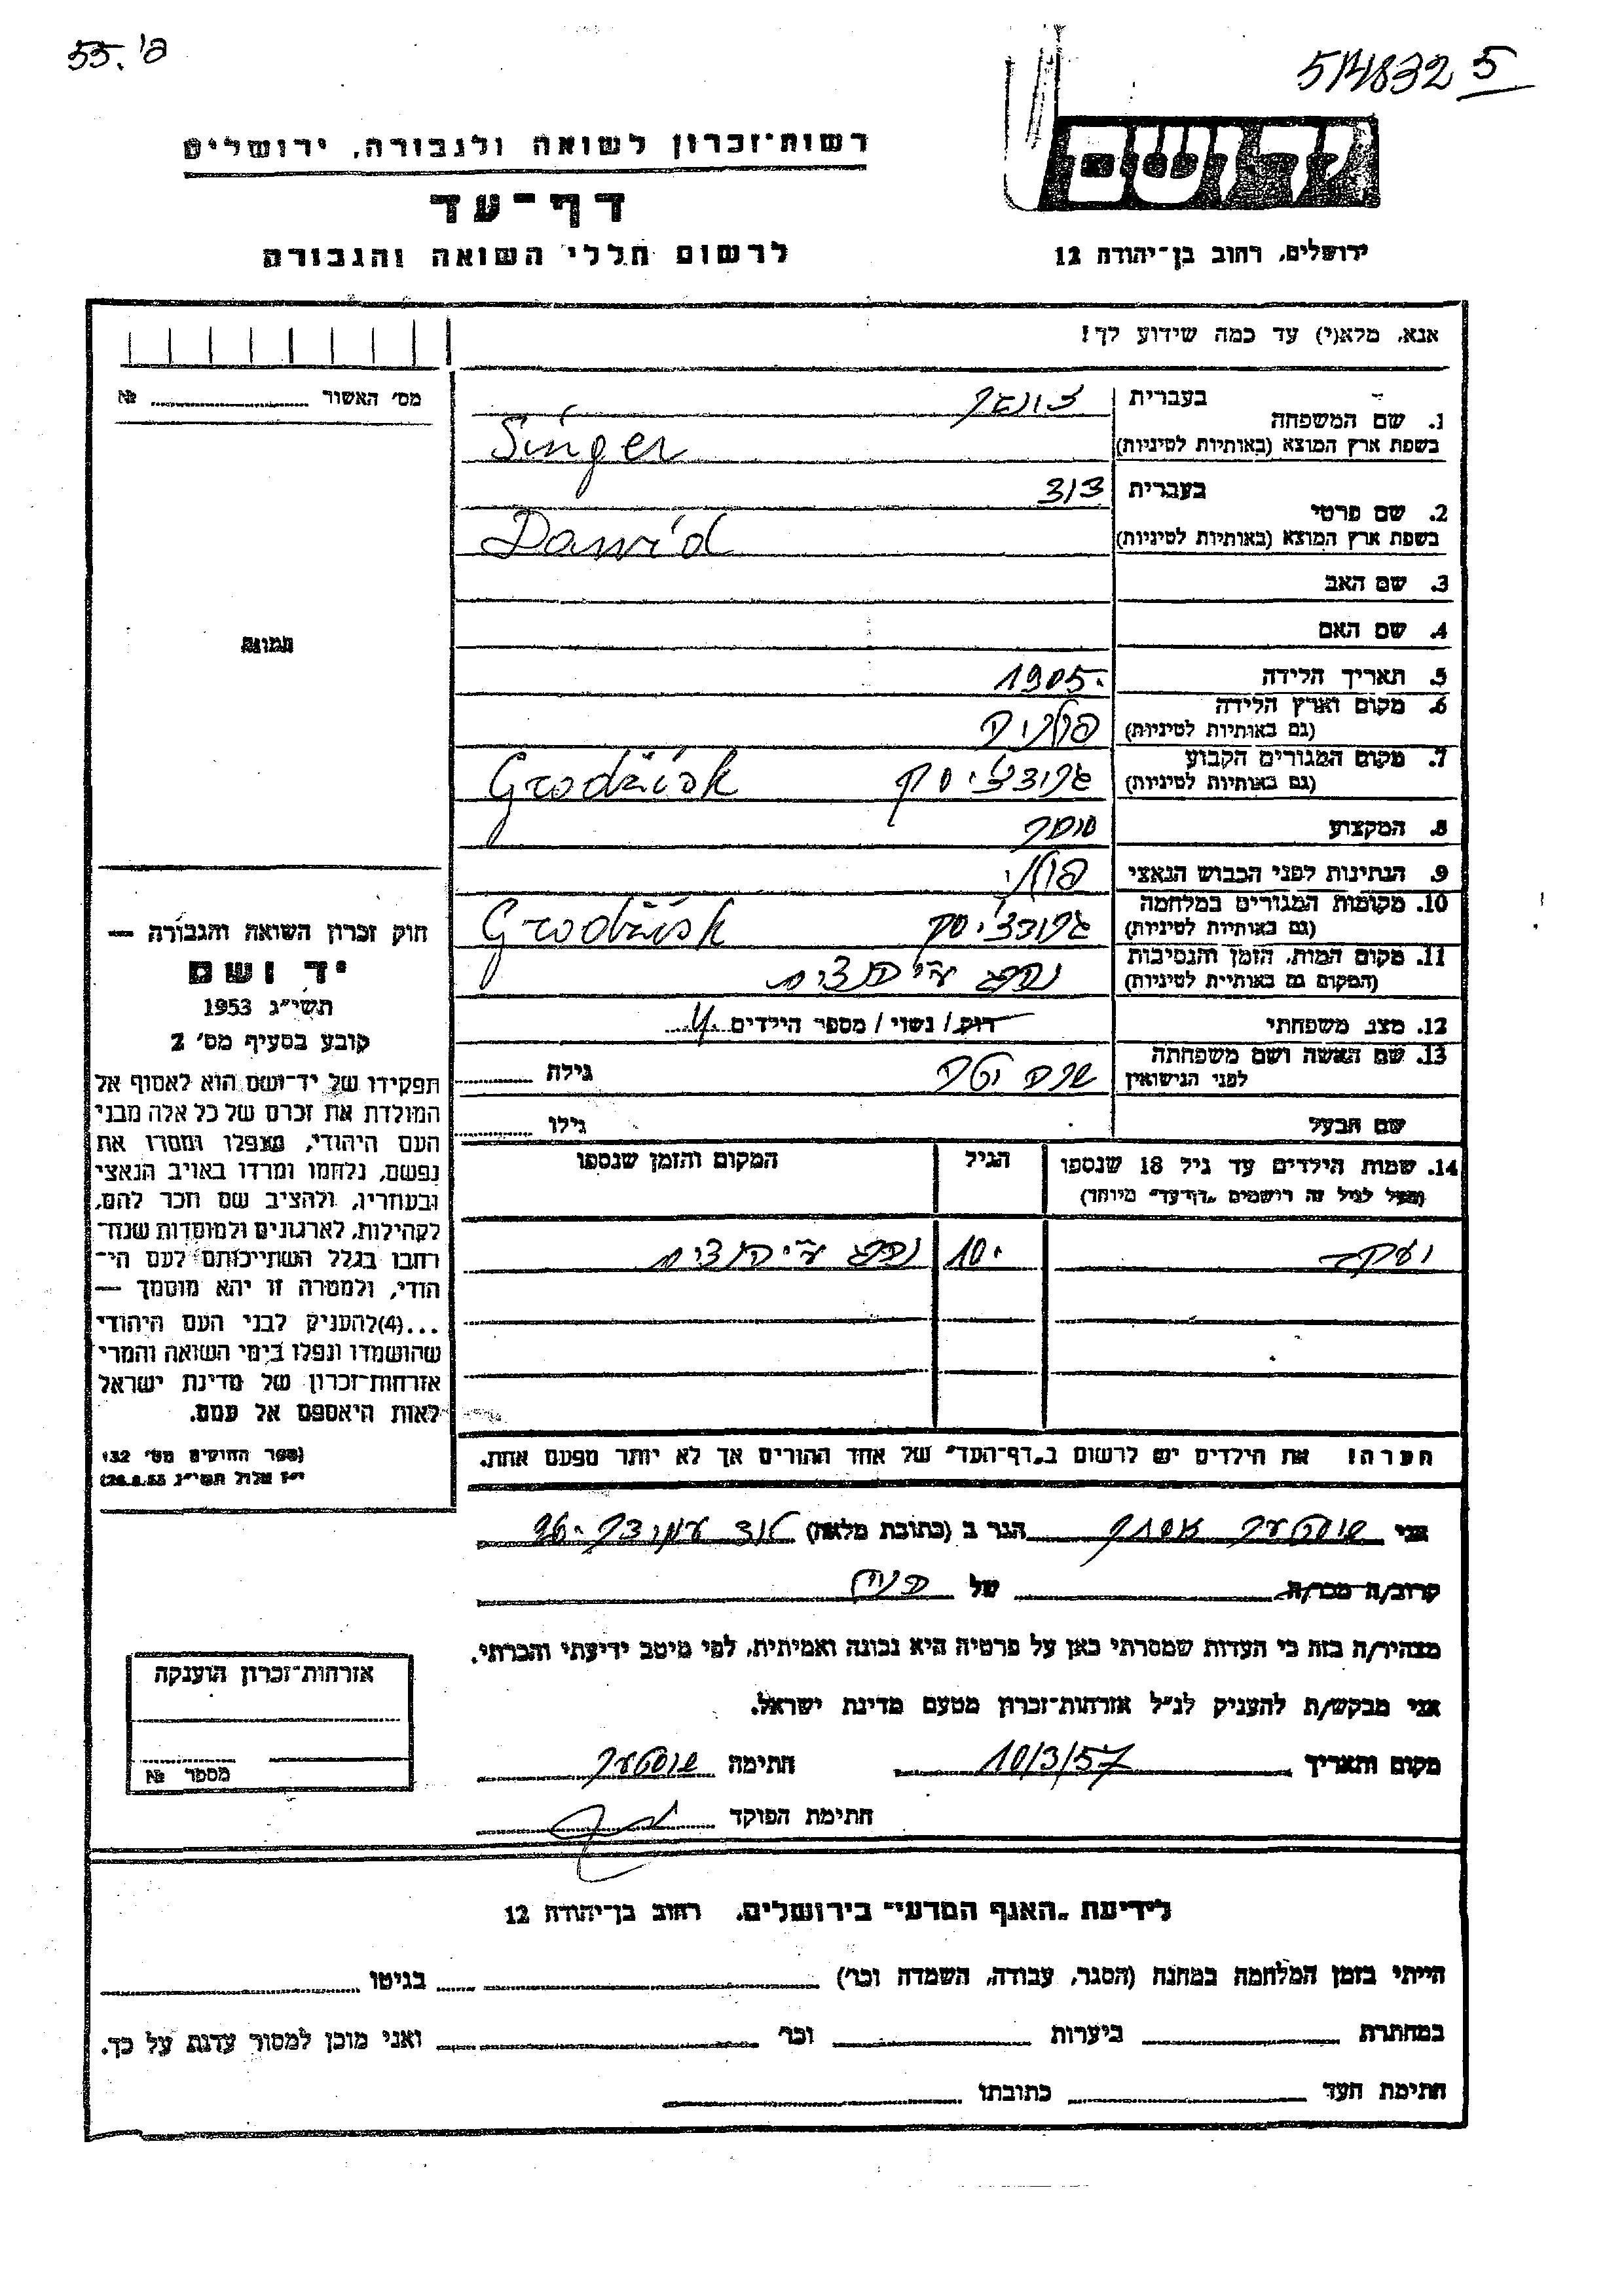 55. פ'
514832 5
רשות-זכרון לשואה ולגבורה, ירושלים
דף-עד
לרשום חללי השואה והגבורה
יד ושם
ירושלים, רחוב בן-יהודה 12
אנא, מלא(י) עד כמה שידוע לך!
מס' האשור № 
1. שם המשפחה
בעברית זינגר
בשפת ארץ המוצא (באותיות לטיניות) Singer
2. שם פרטי
בעברית דוד
בשפת ארץ המוצא (באותיות לטיניות) Dawid
3. שם האב
4. שם האם
תמונה
5. תאריך הלידה 1905.
6. מקום וארץ הלידה
(גם באותיות לטיניות) פולניה
7. מקום המגורים הקבוע
(גם באותיות לטיניות) גרודז'יסק Grodźisk
8. המקצוע סוחר
9. הנתינות לפני הכבוש הנאצי פולני
10. מקומות המגורים במלחמה
(גם באותיות לטיניות) גרודז'יסק Grodźisk
11. מקום המות, הזמן והנסיבות
(המקום גם באותיות לטיניות) נהרג ע"י הנאצים
12. מצב משפחתי רוק/ נשוי/ מספר הילדים
13. שם האשה ושם משפחתה
לפני הנישואין שרה גילה
שם הבעל גילו
14. שמות הילדים עד גיל 18 שנספו
(מעל לגיל זה רושמים "דף-עד" מיוחד)
הגיל
המקום והזמן שנספו
יעקב 10. נהרג ע"י הנאצים
הערה! את הילדים יש לרשום ב"דף-העד" של אחד ההורים אך לא יותר מפעם אחת.
חוק זכרון השואה והגבורה —
יד ושם
תשי"ג 1953
קובע בסעיף מס' 2
תפקידו של יד-ושם הוא לאסוף אל
המולדת את זכרם של כל אלה מבני
העם היהודי, שנפלו ומסרו את
נפשם, נלחמו ומרדו באויב הנאצי
ובעוזריו, ולהציב שם וזכר להם,
לקהילות, לארגונים ולמוסדות שנח-
רבו בגלל השתייכותם לעם הי-
הודי, ולמטרה זו יהא מוסמך —
...(4)להעניק לבני העם היהודי
שהושמדו ונפלו בימי השואה והמרי
אזרחות-זכרון של מדינת ישראל
לאות היאספם אל עמם.
(ספר החוקים מס' 132
י"ז אלול תשי"ג 28.8.53)
אני שוסטער אסתר הגר ב (כתובת מלאה)
קרוב/ה מכר/ה של
מצהיר/ה בזה כי העדות שמסרתי כאן על פרטיה היא נכונה ואמיתית, לפי מיטב ידיעתי והכרתי.
אני מבקש/ת להעניק לנ"ל אזרחות-זכרון מטעם מדינת ישראל.
מקום ותאריך 10/3/57 חתימה שוסטער
חתימת הפוקד
אזרחות-זכרון הוענקה
מספר №
לידיעת "האגף המדעי" בירושלים, רחוב בן-יהודה 12
הייתי בזמן המלחמה במחנה (הסגר, עבודה, השמדה וכו') בגיטו
במחתרת ביערות וכו' ואני מוכן למסור עדות על כך.
חתימת העד כתובתו